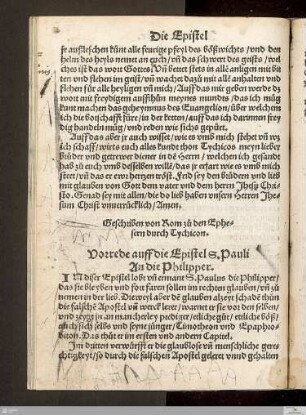 Die Epistel
jr außleschen künt alle feurige pfeyl des bößwichtes / vnd den
helm des heyls nemet an euch / vñ das schwert des geists / wel-
ches ist das wort Gottes. Vñ bettet stets in allē anligen mit bit
ten vnd flehen im geist / vñ wachet dazu mit allē anhalten vnd
flehen für alle heyligen vñ mich / Auff das mir geben werde dz
wort mit freydigem auffthůn meynes mundts / das ich můg
kunt machen das geheymnus des Euangelion / über welchem
ich die botschafft füre / in der ketten / auff das ich darinnen frey
dig handeln müg / vnd reden wie sichs gepürt.
Auff das aber jr auch wisset / wie es vmb mich stehet vñ wz
ich schaff / wirts euch alles kundt thon Tychicos meyn lieber
brůder vnd getrewer diener in dē Herrn / welchen ich gesandt
hab zů euch vmb desselben will / das jr erfart wie es vmb mich
stett / vñ das er ewr hertzen tröst. Frid sey den brüdern vnd lieb
mit glauben von Gott dem vater vnd dem herrn Jhesu Chri
sto. Gnad sey mit allen / die do lieb haben vnsern Herren Jhe
sum Christ vnuerrücklich / Amen.
Geschriben von Rom zů den Ephe-
sern durch Tychicon.
Vorrede auff die Epistel S. Pauli
An die Philipper.
IN diser Epistel lobt vñ ermant S. Paulus die Philipper /
das sie bleyben vnd fort faren sollen im rechten glauben / vñ zů
nemen in der lieb. Dieweyl aber dē glauben alzeyt schadē thůn
die falschē Apostel vñ werck lerer / warnet er sie vor den selben /
vnd zeygt jn an mancherley prediger / etliche gůte / etliche böß /
auch sich selbs vnd seyne jünger / Timotheon vnd Epaphro-
diton. Das thůt er im ersten vnd andern Capitel.
Im dritten verwürfft er die glaublose vñ menschliche gere
chtigkeyt / so durch die falschen Apostel geleret vnnd gehalten